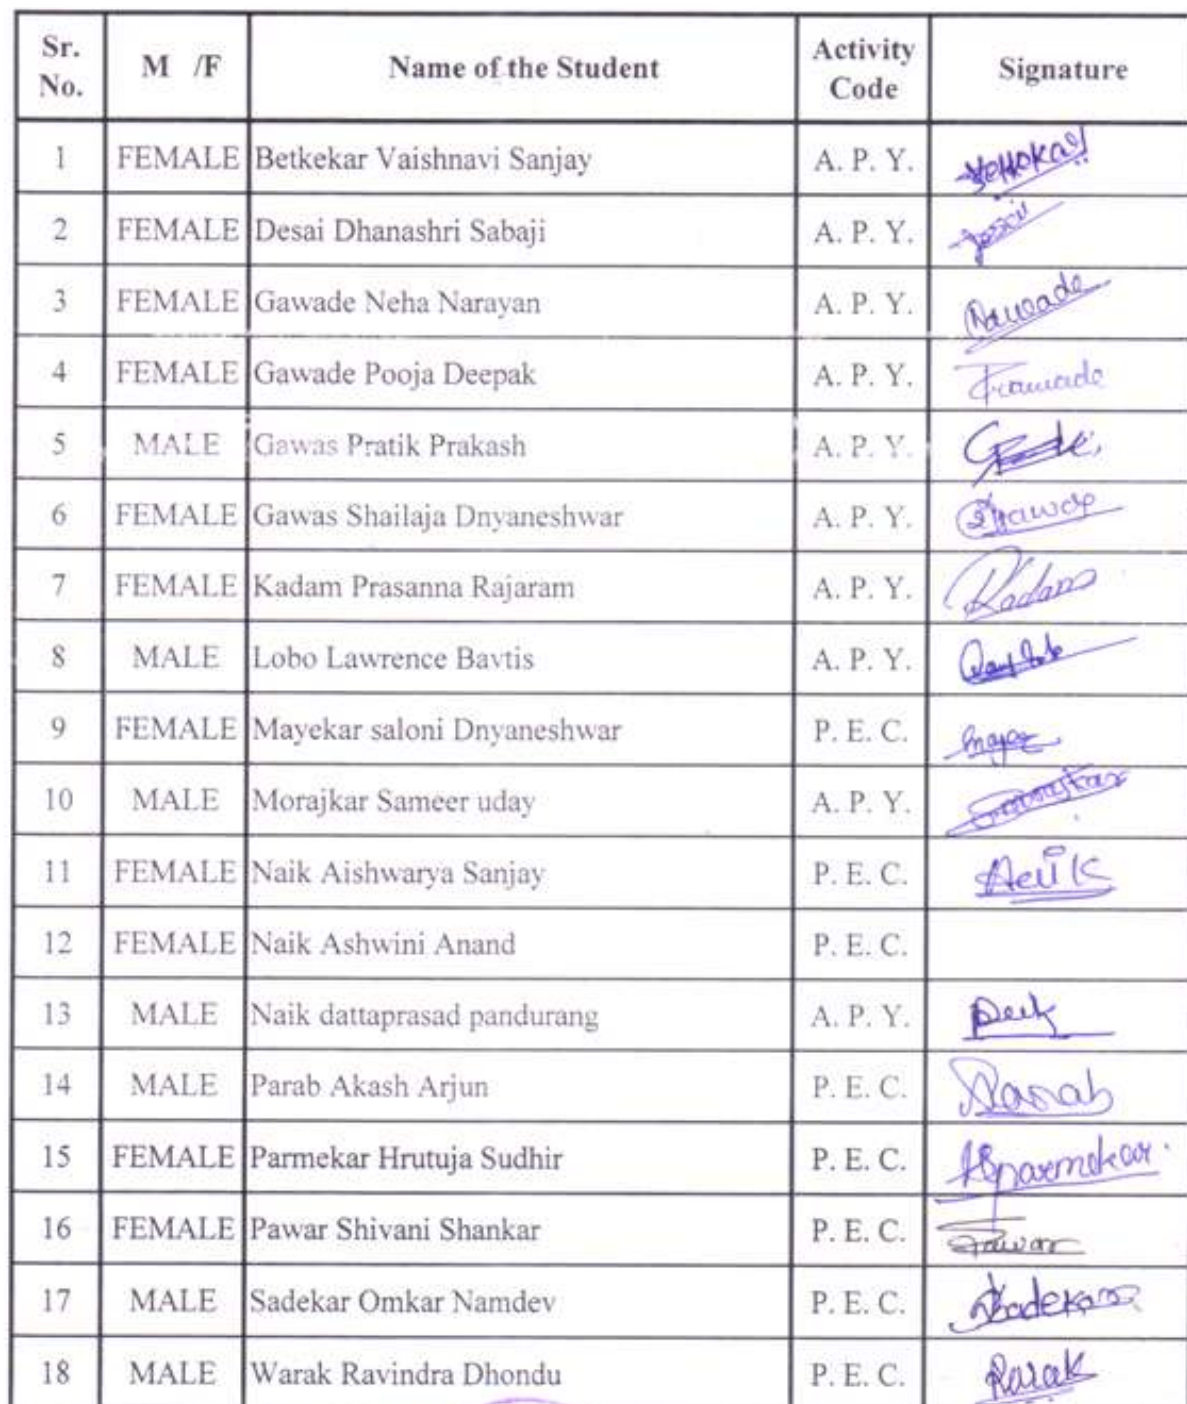 Sr. No. M /F Name of the Student Activity Code Signature
1 FEMALE Betkekar Vaishnavi Sanjay A. P. Y.
2 FEMALE Desai Dhanashri Sabaji A. P. Y. Desai
3 FEMALE Gawade Neha Narayan A. P. Y. Gawade
4 FEMALE Gawade Pooja Deepak A. P. Y. Gawade
5 MALE Gawas Pratik Prakash A. P. Y.
6 FEMALE Gawas Shailaja Dnyaneshwar A. P. Y. Gawas
7 FEMALE Kadam Prasanna Rajaram A. P. Y. Kadam
8 MALE Lobo Lawrence Bavtis A. P. Y.
9 FEMALE Mayekar saloni Dnyaneshwar P. E. C.
10 MALE Morajkar Sameer uday A. P. Y.
11 FEMALE Naik Aishwarya Sanjay P. E. C. Naik
12 FEMALE Naik Ashwini Anand P. E. C.
13 MALE Naik dattaprasad pandurang A. P. Y.
14 MALE Parab Akash Arjun P. E. C. Parab
15 FEMALE Parmekar Hrutuja Sudhir P. E. C. HSparmekar.
16 FEMALE Pawar Shivani Shankar P. E. C. Pawar
17 MALE Sadekar Omkar Namdev P. E. C. Sadekar
18 MALE Warak Ravindra Dhondu P. E. C. Warak